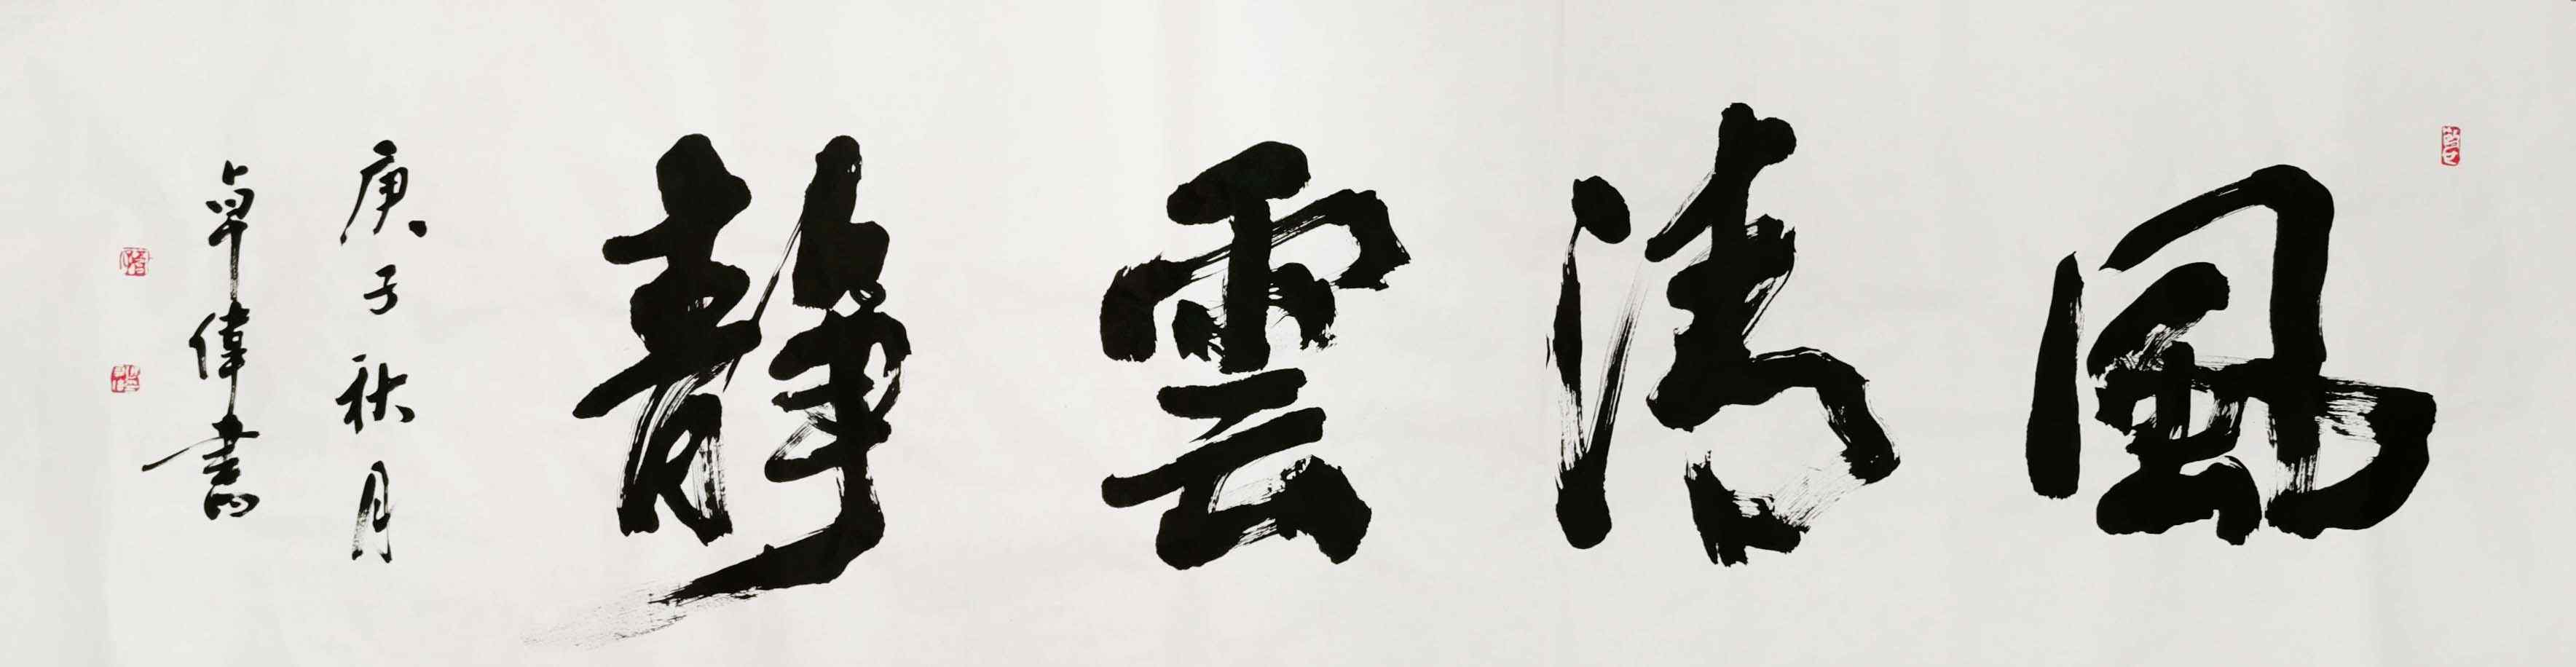 風清雲靜
庚子秋月
卓偉書